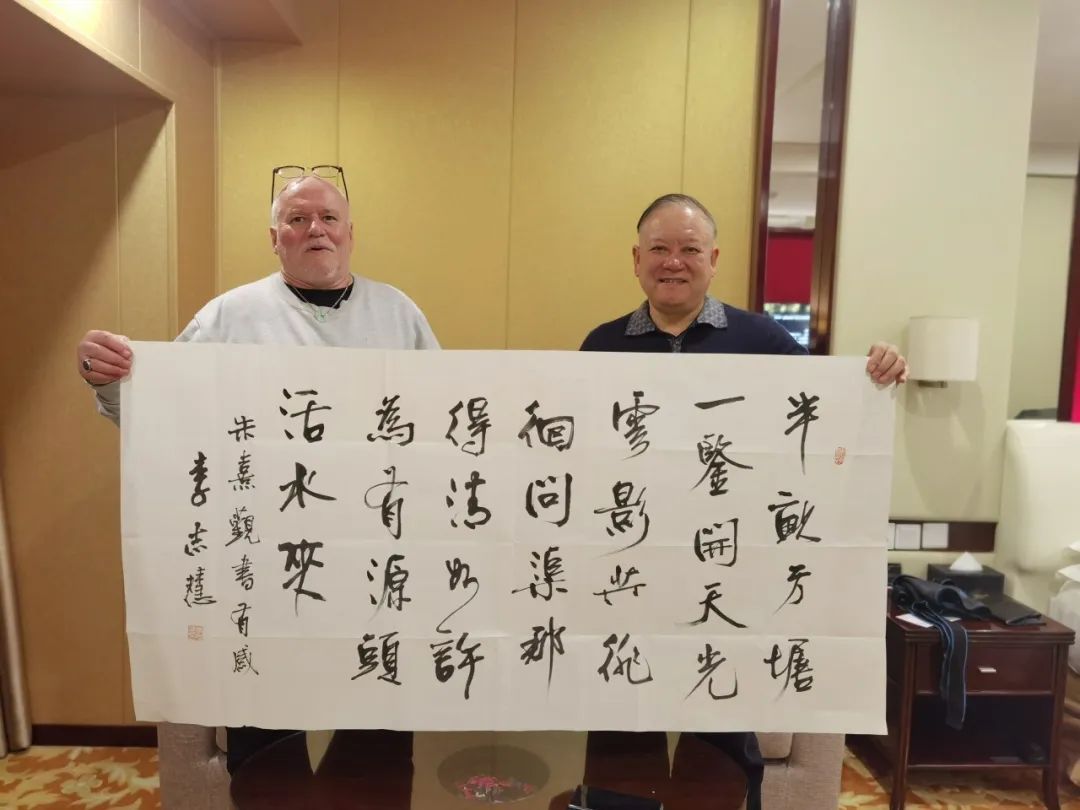 半畝方塘
一鑒開天光
雲影共徘
徊問渠那
得清如許
為有源頭
活水來
朱熹觀書有感
李志